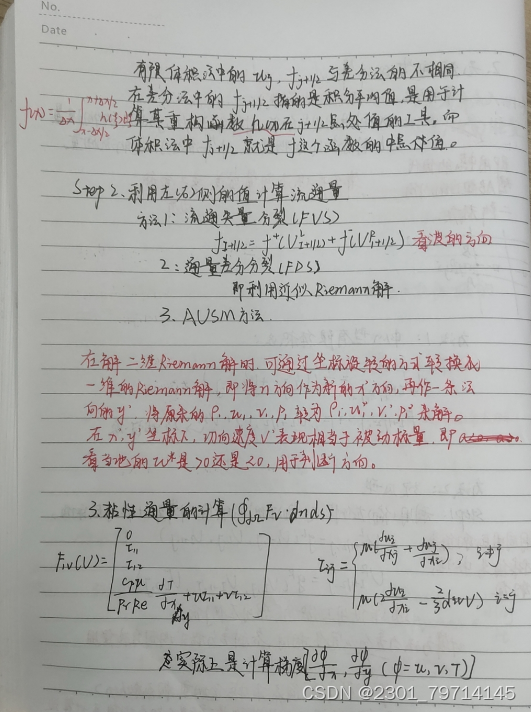 No.
Date
有限体积法中的 uj, fj+1/2 与差分法的不相同
在差分法中的 fj+1/2 指的是积分平均值,是用于计
f(x)=1/Δx∫_{x-Δx/2}^{x+Δx/2} h(ξ)dξ
算其重构函数 h(x)在j+1/2点处值的工具。而
体积法中 fj+1/2 就是 f 这个函数的
Step 2. 利用左(右)侧的值计算流通量
方法1: 流通矢量分裂(FVS)
fj+1/2 = f⁺(U^L_{j+1/2}) + f⁻(U^R_{j+1/2}) 看波的方向
2: 通量差分分裂(FDS)
即利用近似Riemann解.
3. AUSM方法.
在解二维Riemann解时,可通过坐标旋转的方式转换成
一维的Riemann解,即将n方向作为新的x'方向,再作一条法
向的y',将原来的ρ,u,v,p 转为 来解。
在x',y'坐标下,切向速度v'表现相当于被动标量,即
看当地的u*是>0还是<0,用于判断方向。
3. 粘性通量的计算(∮∂Ω Fv·n ds)
F1v(U)= [0
τ11
τ12
Cpμ/PrRe ∂T/∂x + uτ11+vτ12]
τij = { μ(∂ui/∂xj + ∂uj/∂xi), i≠j
μ(2∂ui/∂xi − 2/3 divV) i=j
实际上是计算梯度[∂φ/∂x, ∂φ/∂y (φ=u,v,T)]
CSDN @2301_79714145